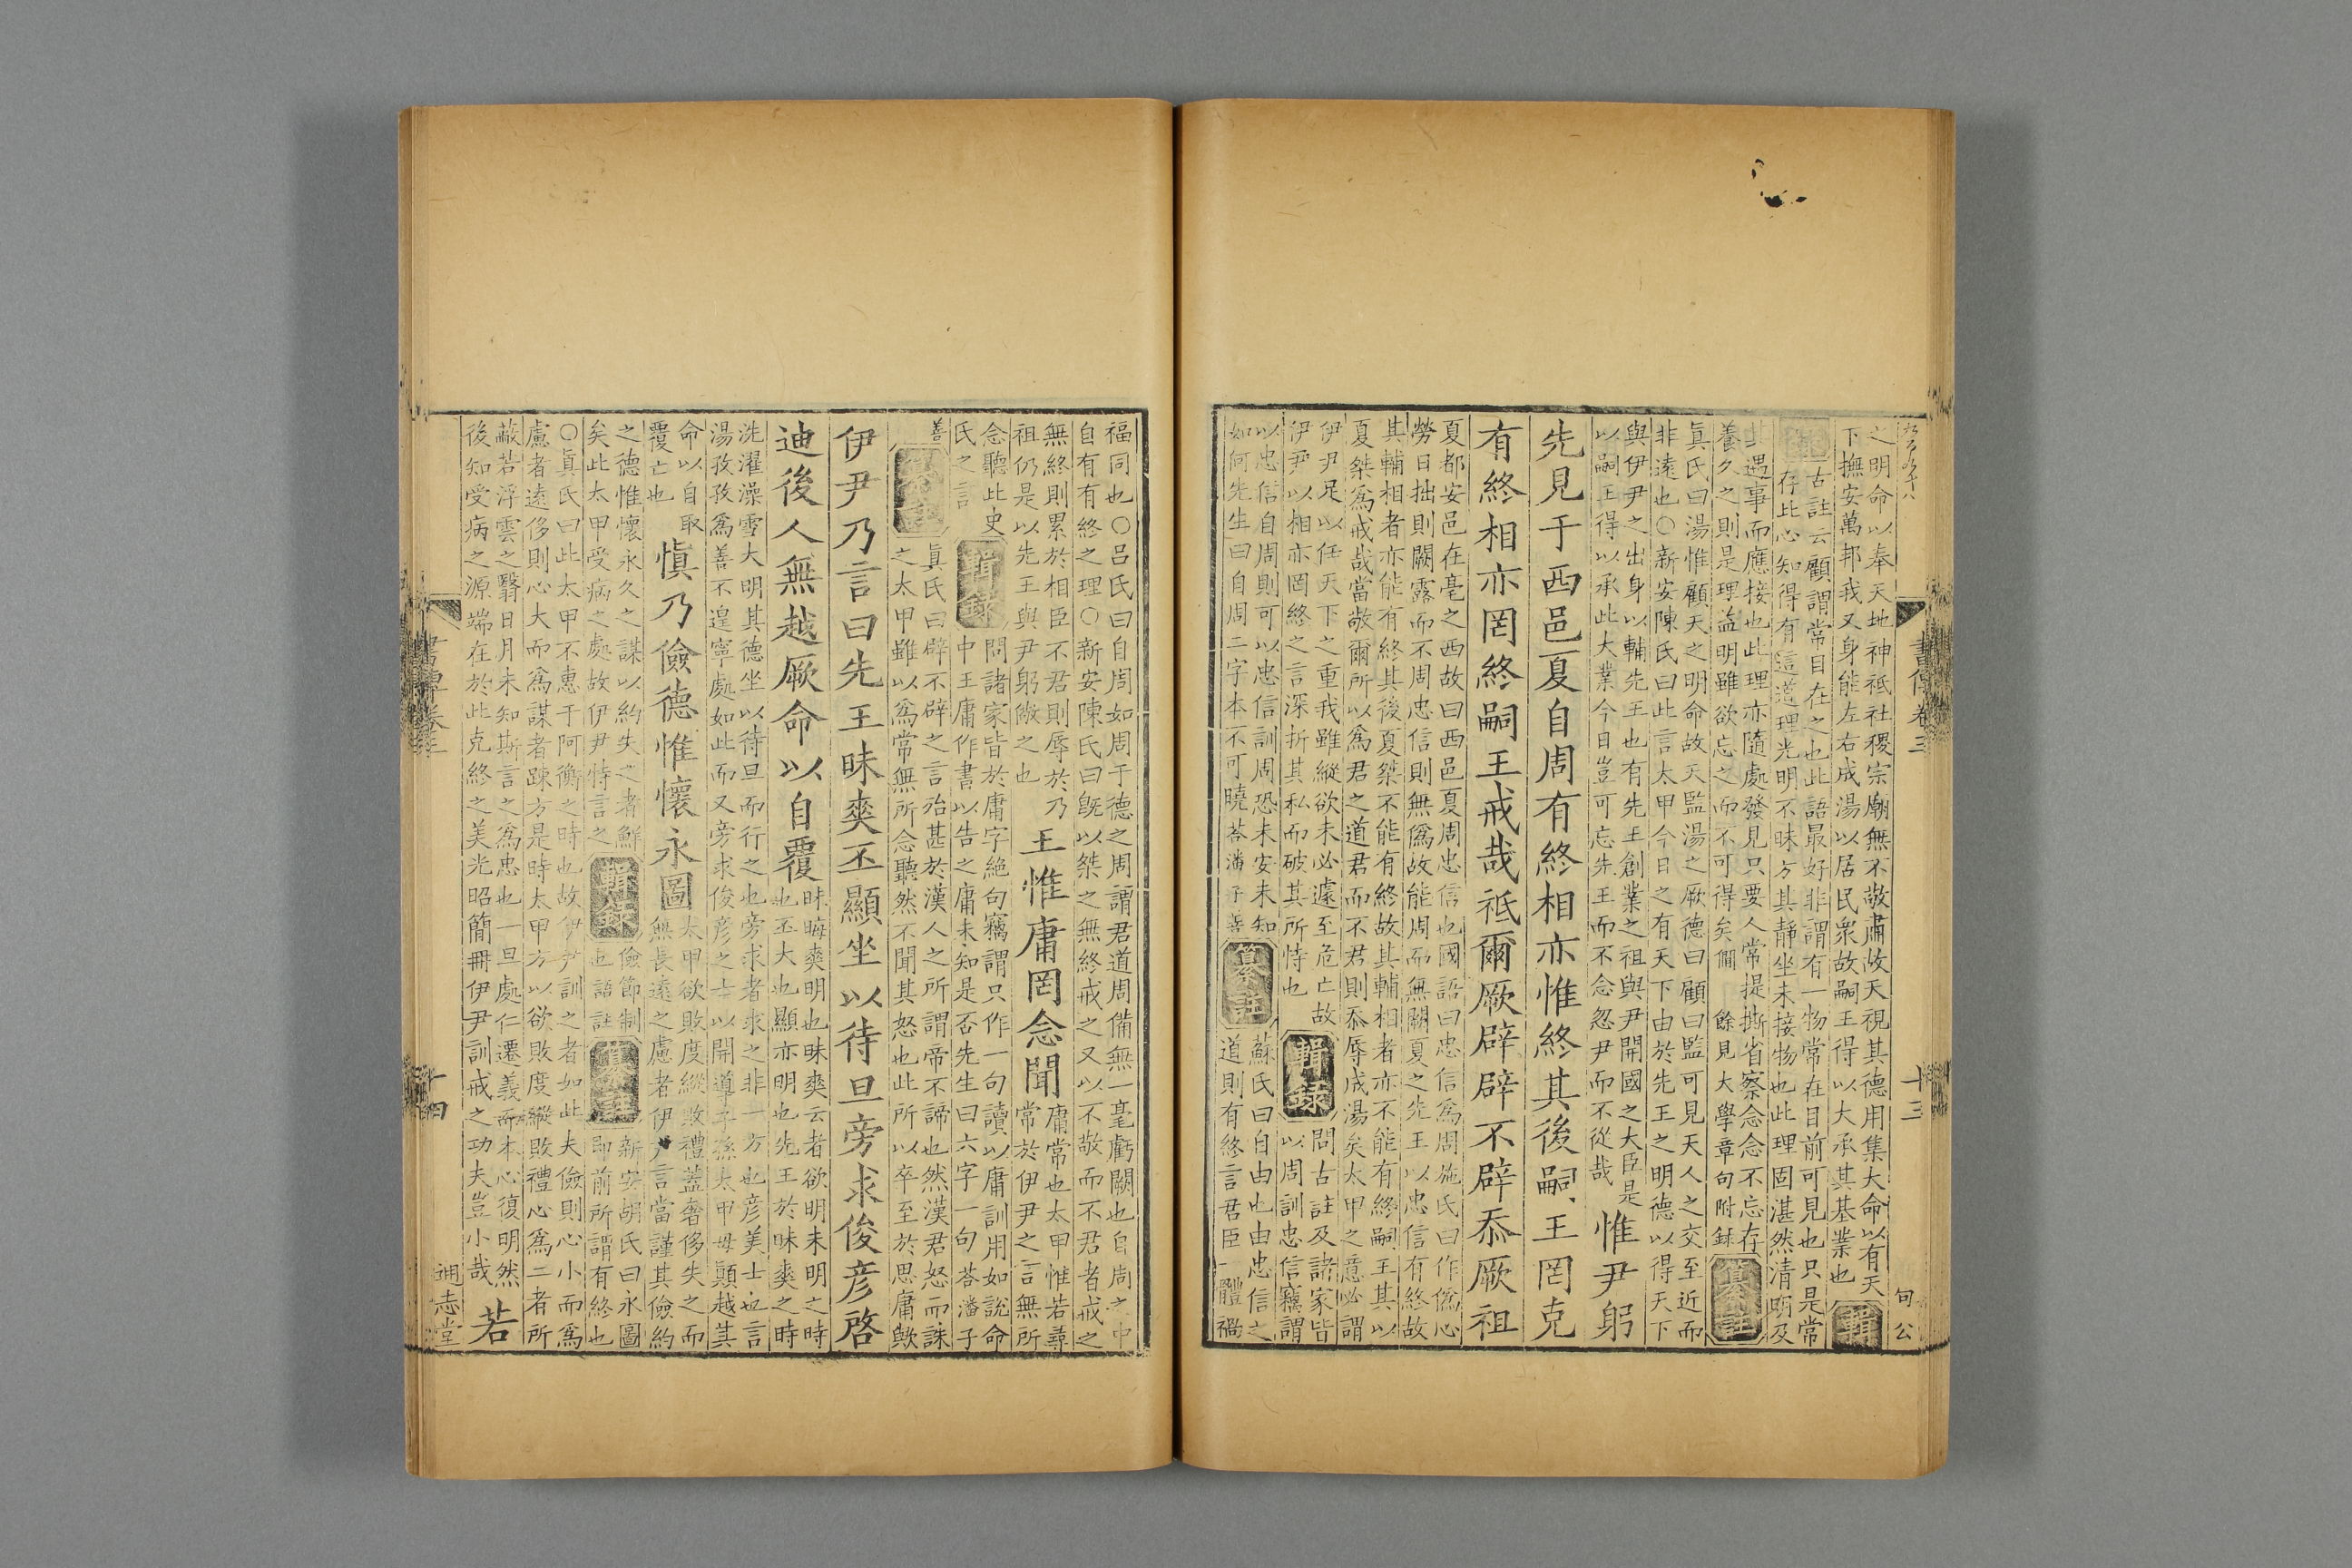 之明命以奉天地神祇社稷宗廟無不敬肅故天視其德用集大命以有天
下撫安萬邦我又身能左右成湯以居民衆故嗣王得以大承其基業也
輯
古註云顧謂常目在之也此語最好非謂有一物常在目前可見也只是常
存此心知得有這道理光明不昧方其靜坐未接物也此理固湛然清明及
其遇事而應接也此理亦隨處發見只要人常提撕省察念念不忘存
養久之則是理益明雖欲忘之而不可得矣僩 餘見大學章句附錄
纂註
眞氏曰湯惟顧天之明命故天監湯之厥德曰顧曰監可見天人之交至近而
非遠也○新安陳氏曰此言太甲今日之有天下由於先王之明德以得天下
與伊尹之出身以輔先王也有先王創業之祖與尹開國之大臣是
以嗣王得以承此大業今日豈可忘先王而不念忽尹而不從哉
惟尹躬
先見于西邑夏自周有終相亦惟終其後嗣王罔克
有終相亦罔終嗣王戒哉祗爾厥辟辟不辟忝厥祖
夏都安邑在亳之西故曰西邑夏周忠信也國語曰忠信爲周施氏曰作僞心
勞日拙則闕露而不周忠信則無僞故能周而無闕夏之先王以忠信有終故
其輔相者亦能有終其後夏桀不能有終故其輔相者亦不能有終嗣王其以
夏桀爲戒哉當敬爾所以爲君之道君而不君則忝辱成湯矣太甲之意必謂
伊尹足以任天下之重我雖縱欲未必遽至危亡故
伊尹以相亦罔終之言深折其私而破其所恃也
輯錄
問古註及諸家皆
以周訓忠信竊謂
以忠信自周則可以忠信訓周恐未安未知
如何先生曰自周二字本不可曉荅潘子善
纂註
蘇氏曰自由也由忠信之
道則有終言君臣一體禍
書傳卷三
十三
福同也○呂氏曰自周如周于德之周謂君道周備無一毫虧闕也自周之中
自有有終之理○新安陳氏曰旣以桀之無終戒之又以不敬而不君者戒之
無終則累於相臣不君則辱於乃
祖仍是以先王與尹躬儆之也
王惟庸罔念聞
庸常也太甲惟若尋
常於伊尹之言無所
念聽此史
氏之言
輯錄
問諸家皆於庸字絶句竊謂只作一句讀以庸訓用如說命
中王庸作書以告之庸未知是否先生曰六字一句荅潘子
善
纂註
眞氏曰辟不辟之言殆甚於漢人之所謂帝不諦也然漢君怒而誅
之太甲雖以爲常無所念聽然不聞其怒也此所以卒至於思庸歟
伊尹乃言曰先王昧爽丕顯坐以待旦旁求俊彦啓
迪後人無越厥命以自覆
昧晦爽明也昧爽云者欲明未明之時
也丕大也顯亦明也先王於昧爽之時
洗濯澡雪大明其德坐以待旦而行之也旁求者求之非一方也彦美士也言
湯孜孜爲善不遑寧處如此而又旁求俊彦之士以開導子孫太甲毋顚越其
命以自取
覆亡也
愼乃儉德惟懷永圖
太甲欲敗度縱敗禮蓋奢侈失之而
無長遠之慮者伊尹言當謹其儉約
之德惟懷永久之謀以約失之者鮮
矣此太甲受病之處故伊尹特言之
輯錄
儉節制
也語註
纂註
新安胡氏曰永圖
即前所謂有終也
○眞氏曰此太甲不惠于阿衡之時也故伊尹訓之者如此夫儉則心小而爲
慮者遠侈則心大而爲謀者踈方是時太甲方以欲敗度縱敗禮心爲二者所
蔽若浮雲之翳日月未知斯言之爲忠也一旦處仁遷義而本心復明然
後知受病之源端在於此克終之美光昭簡冊伊尹訓戒之功夫豈小哉
若
書傳卷三
十四
通志堂